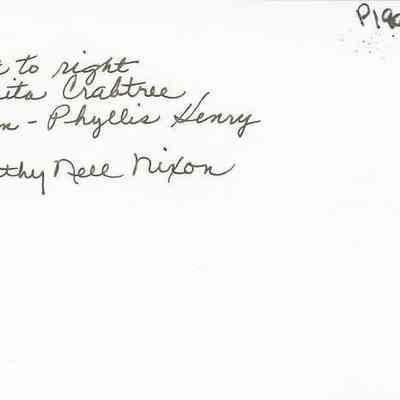 to right
ita Crabtree
n - Phyllis Henry
thy Nell Nixon